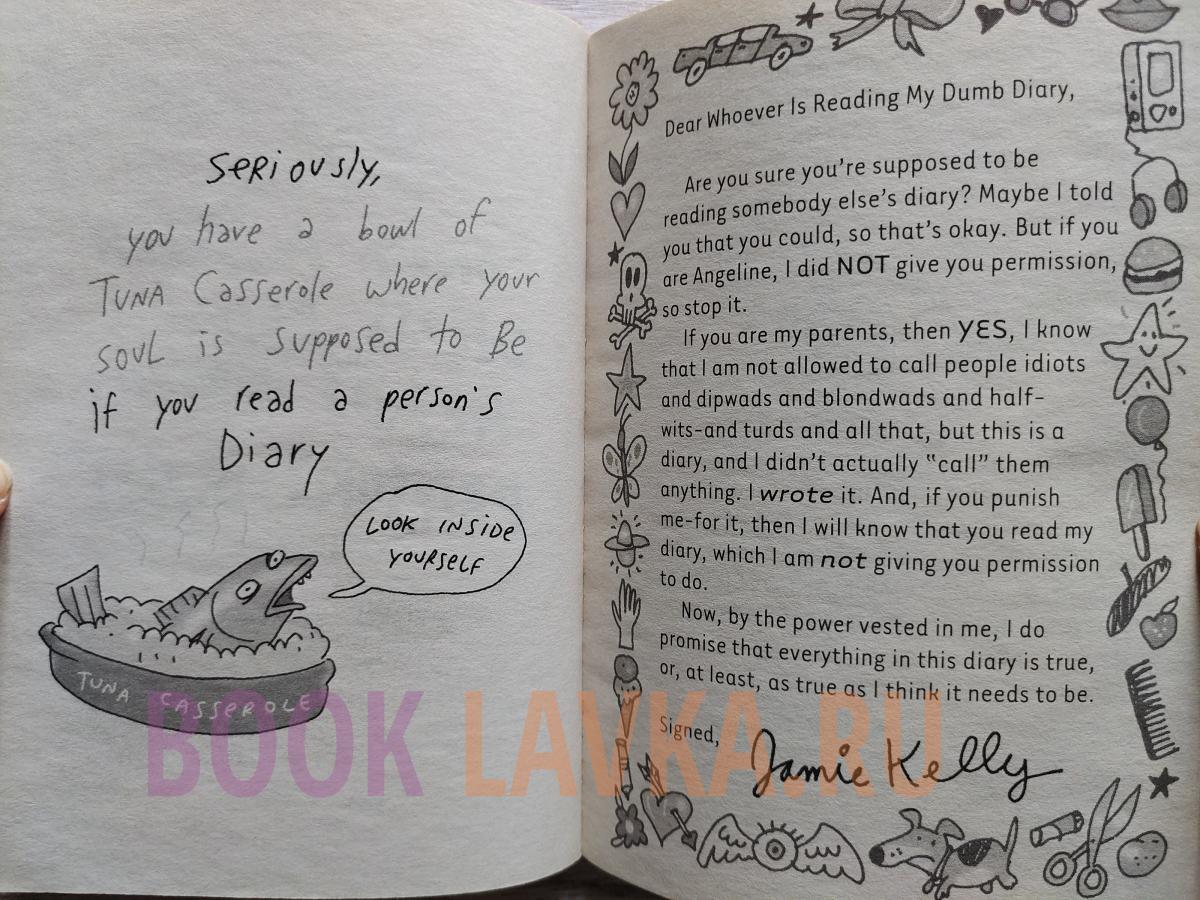 SeRiously,
you have a bowl of
TUNA Casserole where your
soul is supposed to Be
if you read a person's
Diary
LOOK INSIDE
YOURSELF
TUNA CASSEROLE
Dear Whoever Is Reading My Dumb Diary,
Are you sure you're supposed to be
reading somebody else's diary? Maybe I told
you that you could, so that's okay. But if you
are Angeline, I did NOT give you permission,
so stop it.
If you are my parents, then YES, I know
that I am not allowed to call people idiots
and dipwads and blondwads and half-
wits-and turds and all that, but this is a
diary, and I didn't actually "call" them
anything. I wrote it. And, if you punish
me-for it, then I will know that you read my
diary, which I am not giving you permission
to do.
Now, by the power vested in me, I do
promise that everything in this diary is true,
or, at least, as true as I think it needs to be.
Signed,
Jamie Kelly
BOOK LAVKA.RU